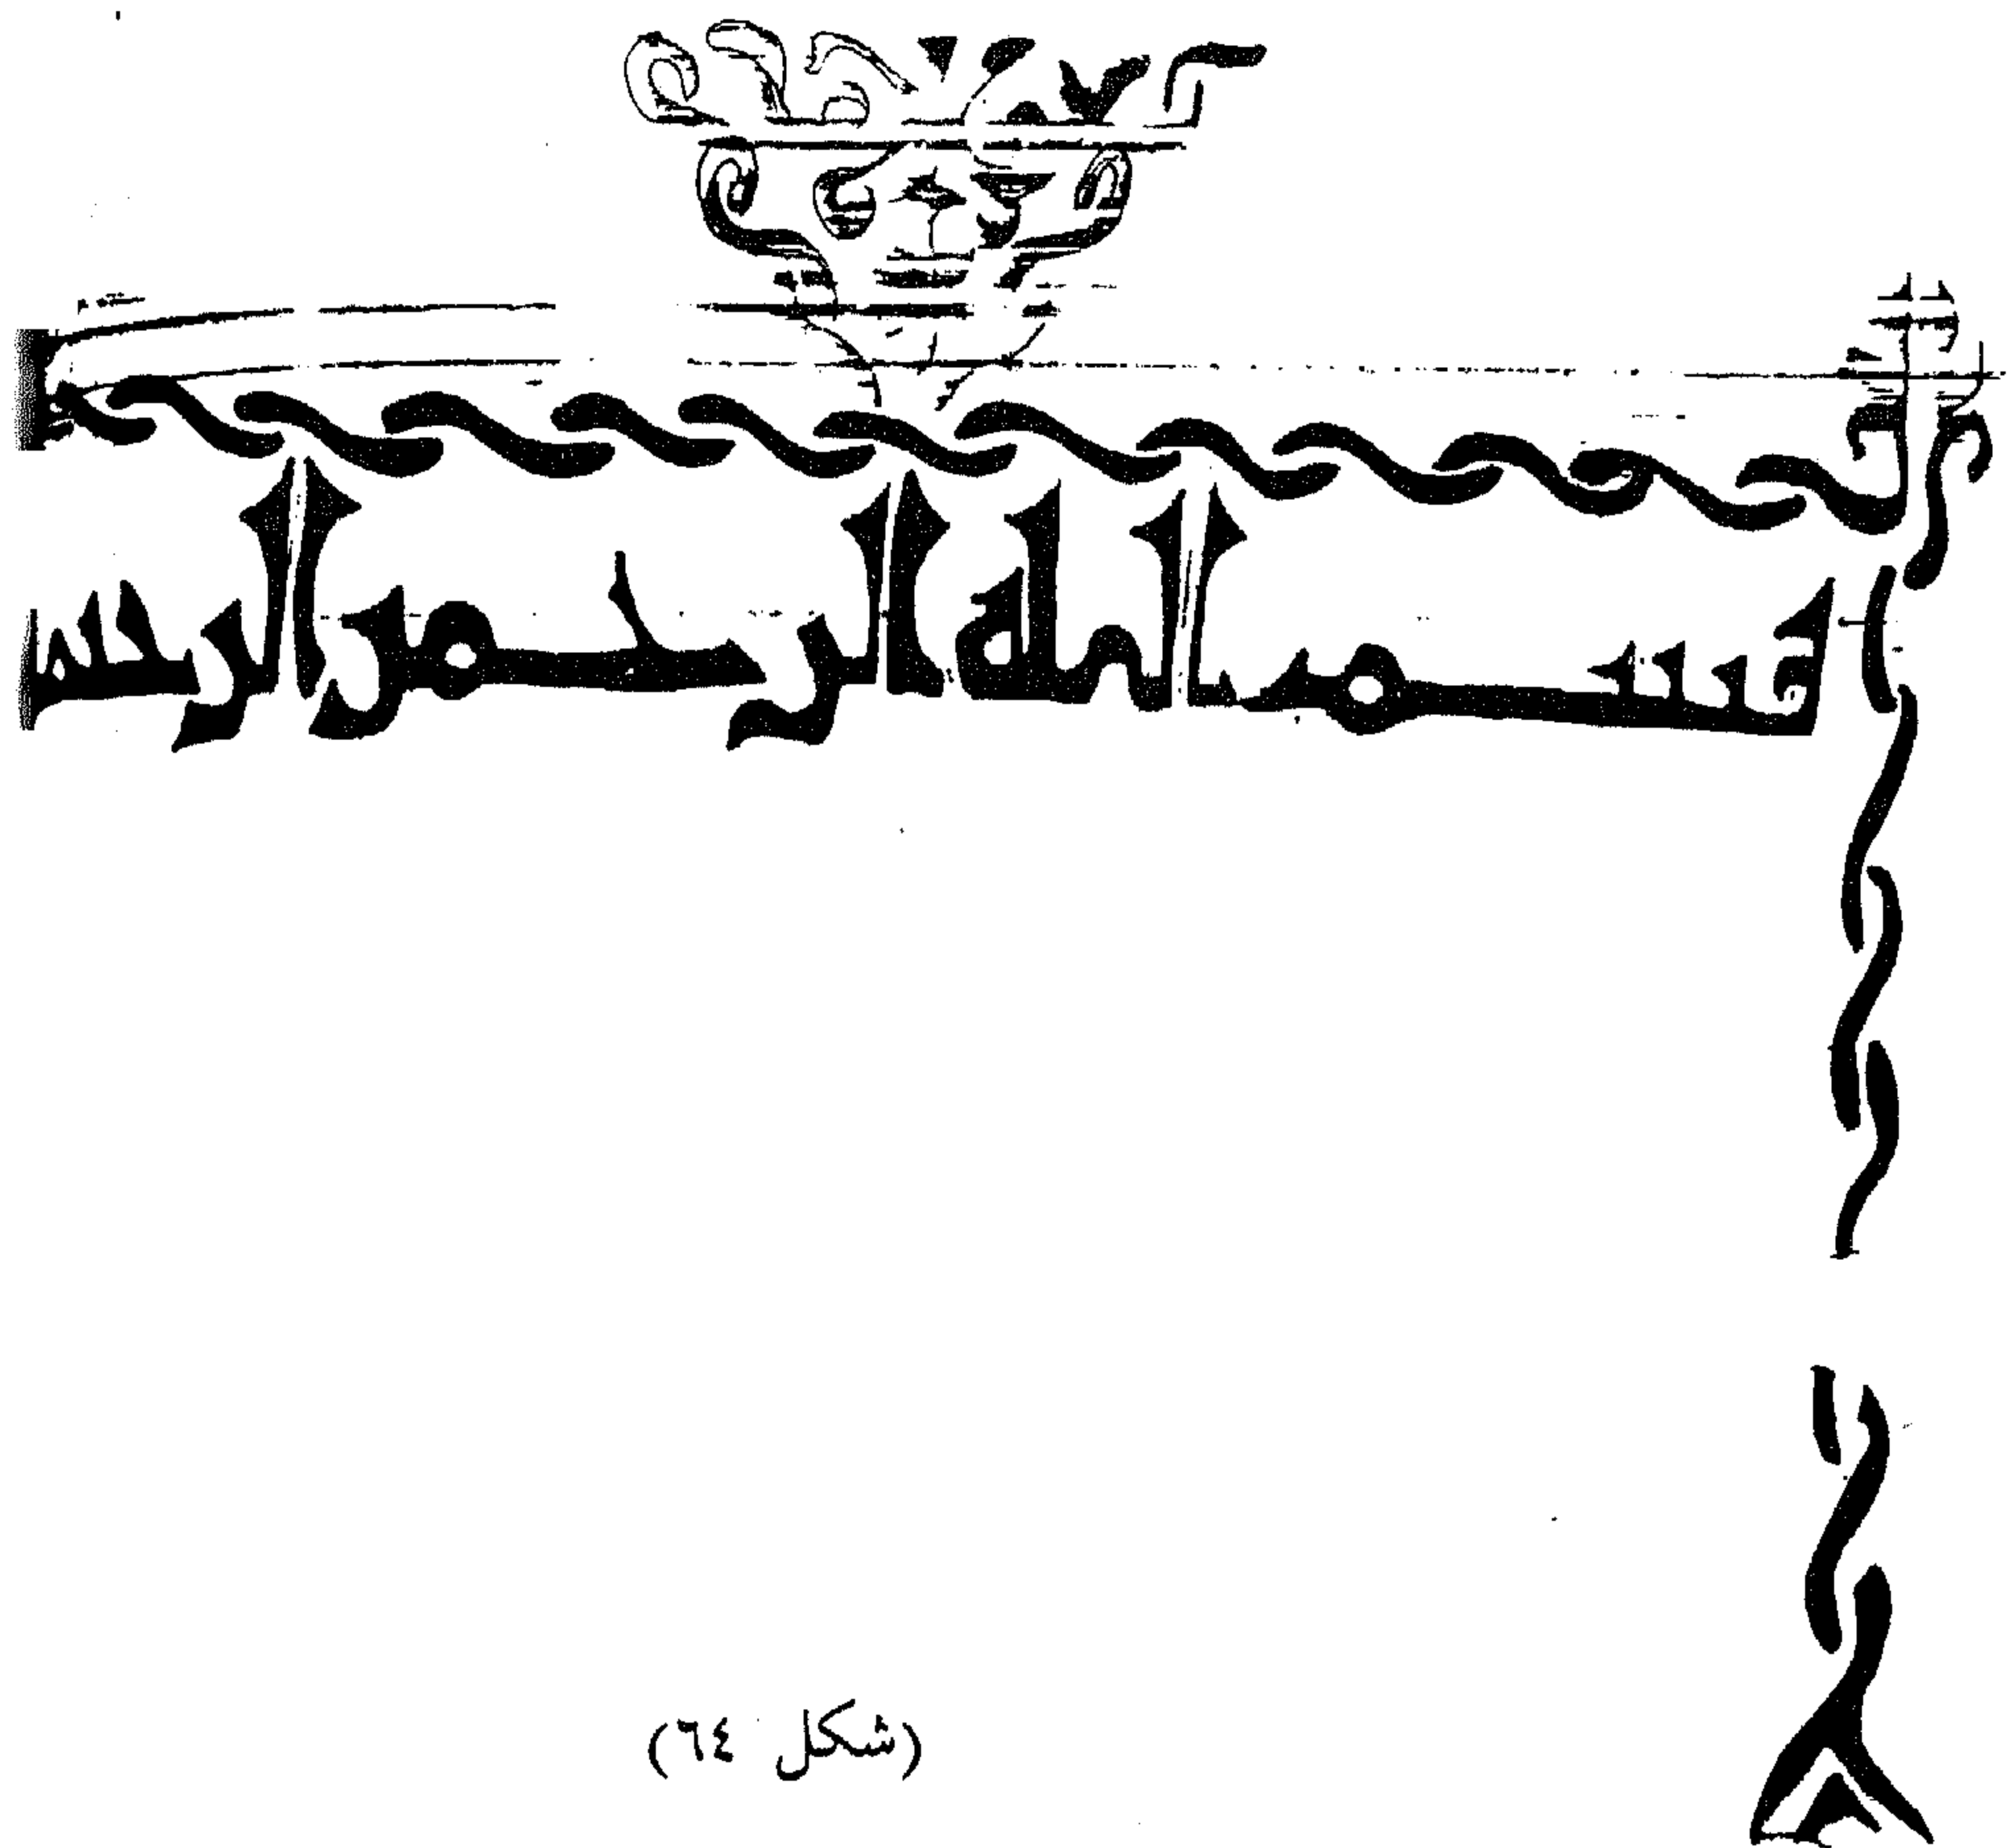 بسم الله الرحمن الرحيم
(شكل ٦٤)